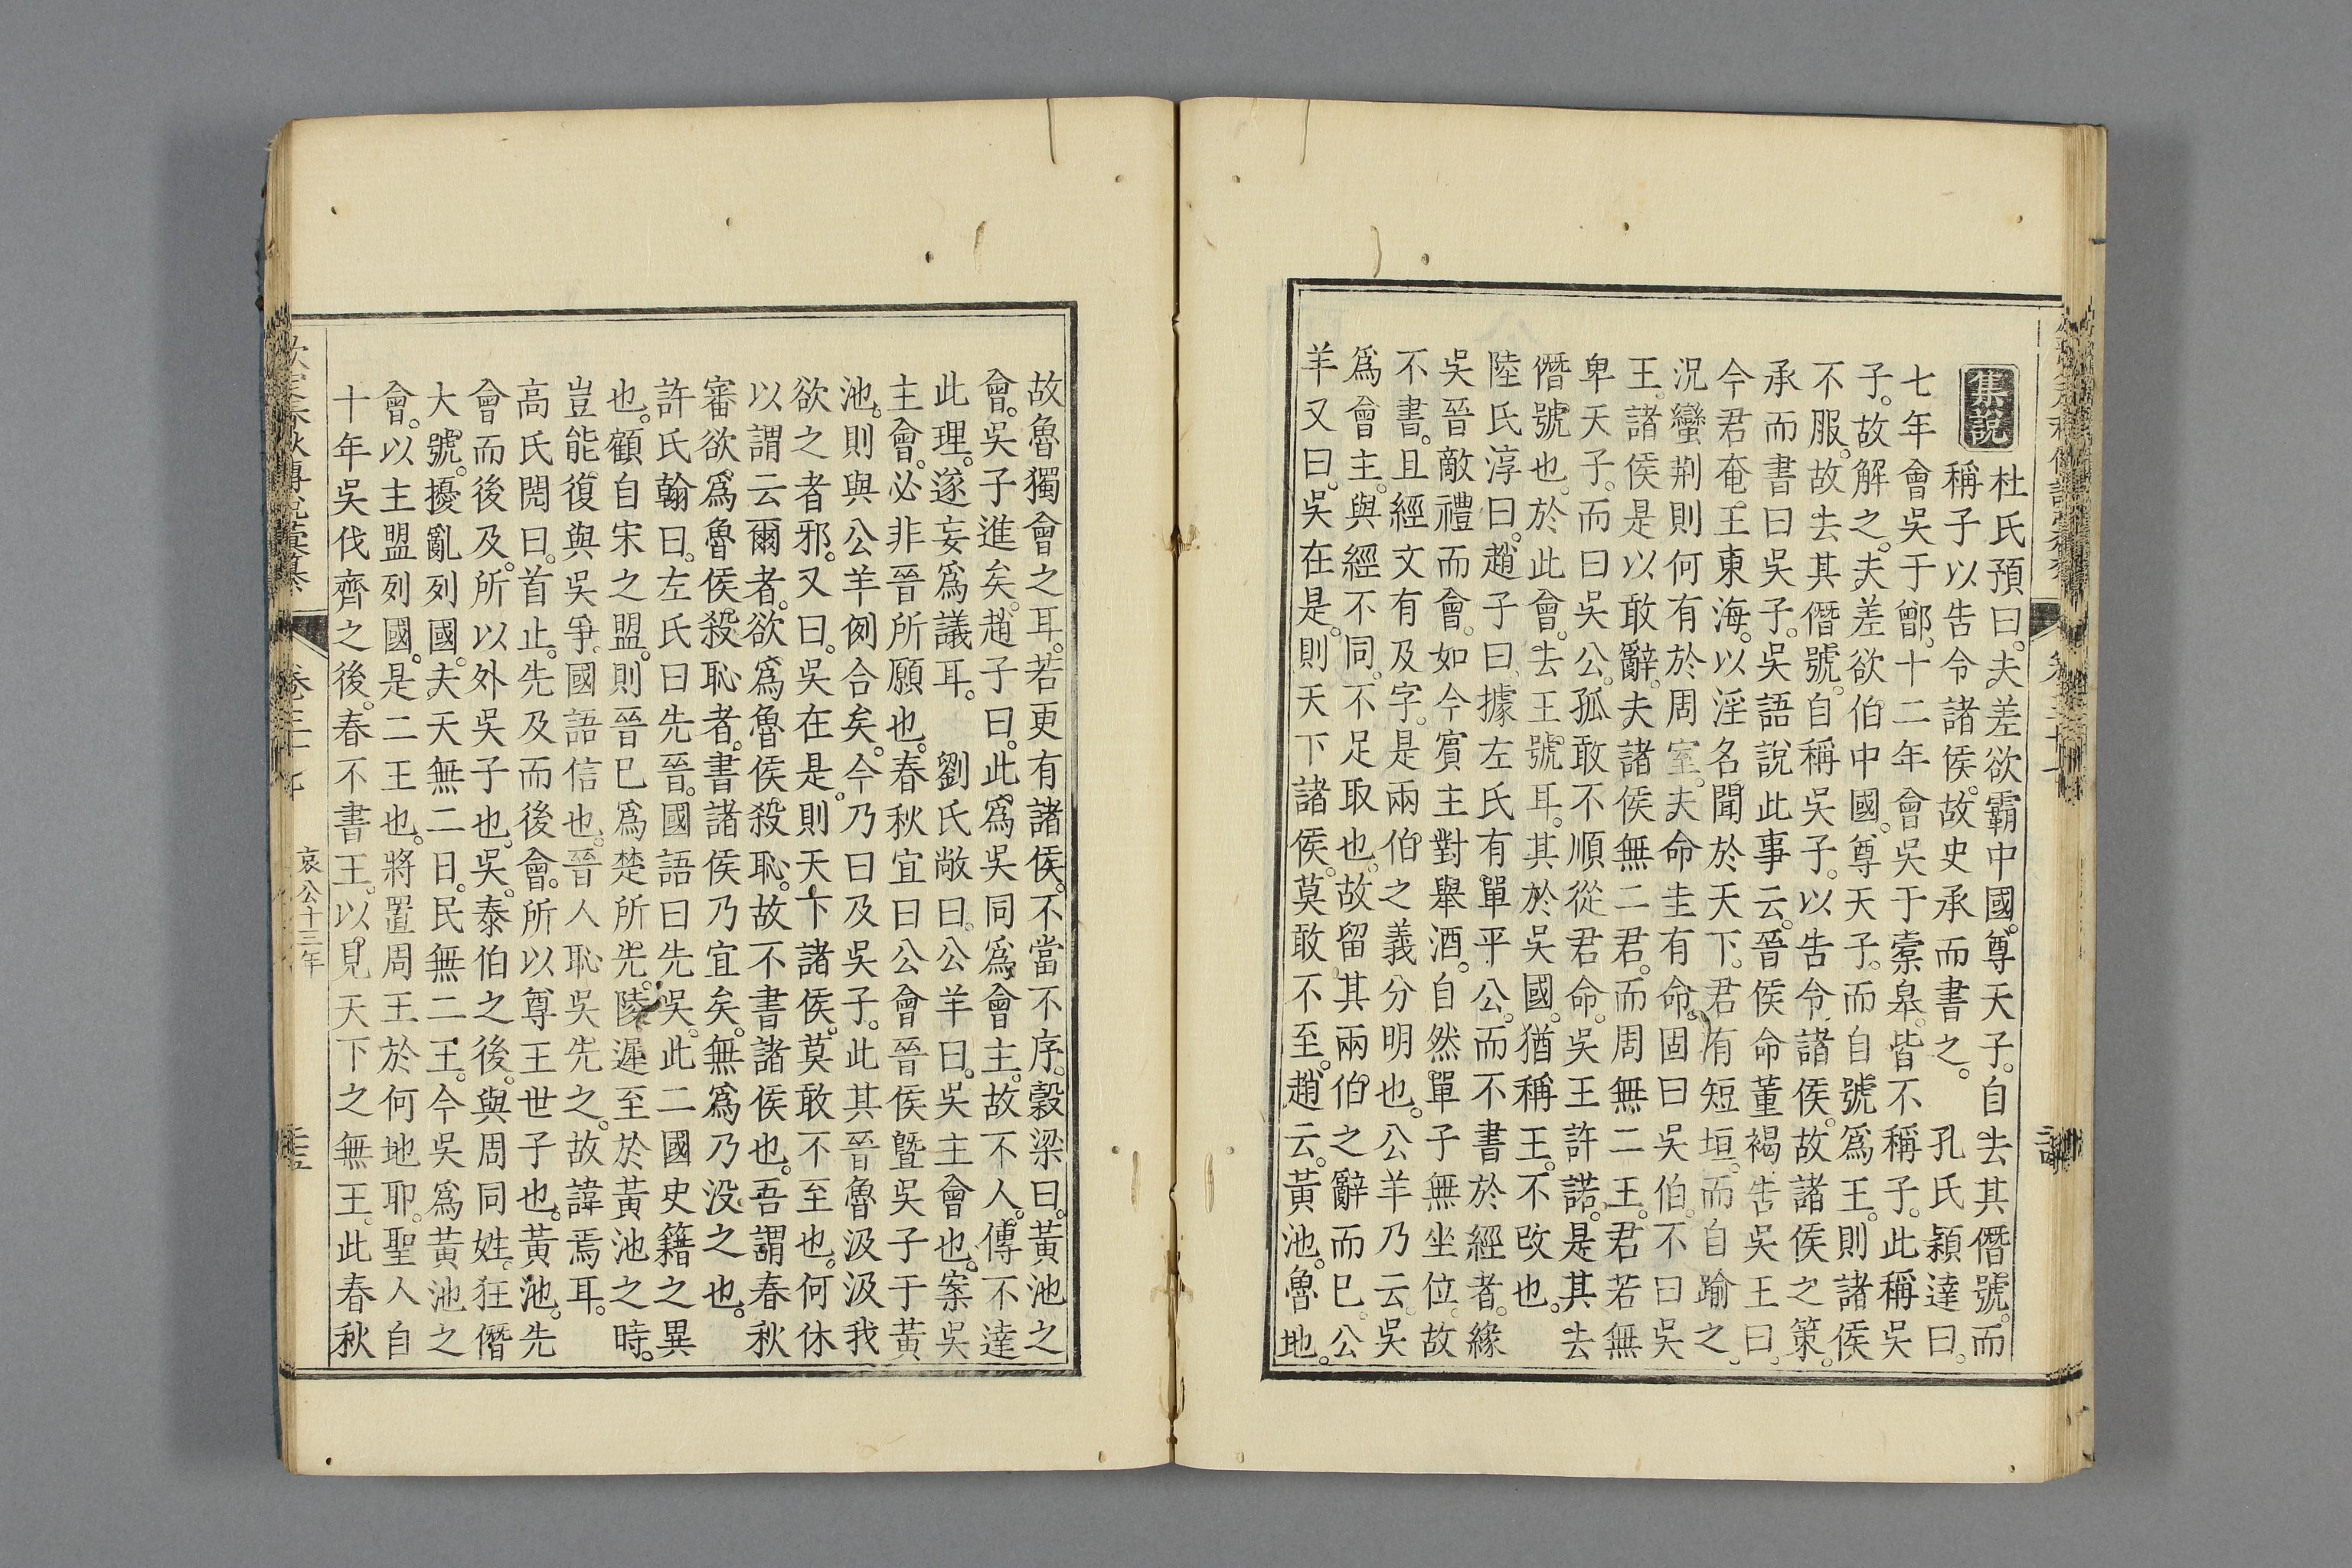 集說
杜氏預曰。夫差欲霸中國。尊天子。自去其僭號。而
稱子以告令諸侯。故史承而書之。 孔氏穎達曰。
七年會吳于鄫。十二年會吳于橐皋。皆不稱子。此稱吳
子。故解之。夫差欲伯中國。尊天子。而自號爲王。則諸侯
不服。故去其僭號。自稱吳子。以告令諸侯。故諸侯之策。
承而書曰吳子。吳語說此事云。晉侯命董褐告吳王曰。
今君奄王東海。以淫名聞於天下。君有短垣。而自踰之。
況蠻荆則何有於周室。夫命圭有命。固曰吳伯。不曰吳
王。諸侯是以敢辭。夫諸侯無二君。而周無二王。君若無
卑天子。而曰吳公。孤敢不順從君命。吳王許諾。是其去
僭號也。於此會。去王號耳。其於吳國。猶稱王。不改也。
陸氏淳曰。趙子曰。據左氏有單平公。而不書於經者。緣
吳晉敵禮而會。如今賓主對舉酒。自然單子無坐位。故
不書。且經文有及字。是兩伯之義分明也。公羊乃云。吳
爲會主。與經不同。不足取也。故留其兩伯之辭而已。公
羊又曰。吳在是。則天下諸侯。莫敢不至。趙云。黃池。魯地。
故魯獨會之耳。若更有諸侯。不當不序。穀梁曰。黃池之
會。吳子進矣。趙子曰。此爲吳同爲會主。故不人。傳不達
此理。遂妄爲議耳。 劉氏敞曰。公羊曰。吳主會也。案吳
主會。必非晉所願也。春秋宜曰公會晉侯曁吳子于黃
池。則與公羊例合矣。今乃曰及吳子。此其晉魯汲汲我
欲之者邪。又曰。吳在是。則天下諸侯。莫敢不至也。何休
以謂云爾者。欲爲魯侯殺恥。故不書諸侯也。吾謂春秋
審欲爲魯侯殺恥者。書諸侯乃宜矣。無爲乃没之也。
許氏翰曰。左氏曰先晉。國語曰先吳。此二國史籍之異
也。顧自宋之盟。則晉已爲楚所先。陵遲至於黃池之時。
豈能復與吳爭。國語信也。晉人恥吳先之。故諱焉耳。
高氏閌曰。首止。先及而後會。所以尊王世子也。黃池。先
會而後及。所以外吳子也。吳。泰伯之後。與周同姓。狂僭
大號。擾亂列國。夫天無二日。民無二王。今吳爲黃池之
會。以主盟列國。是二王也。將置周王於何地耶。聖人自
十年吳伐齊之後。春不書王。以見天下之無王。此春秋
哀公十三年